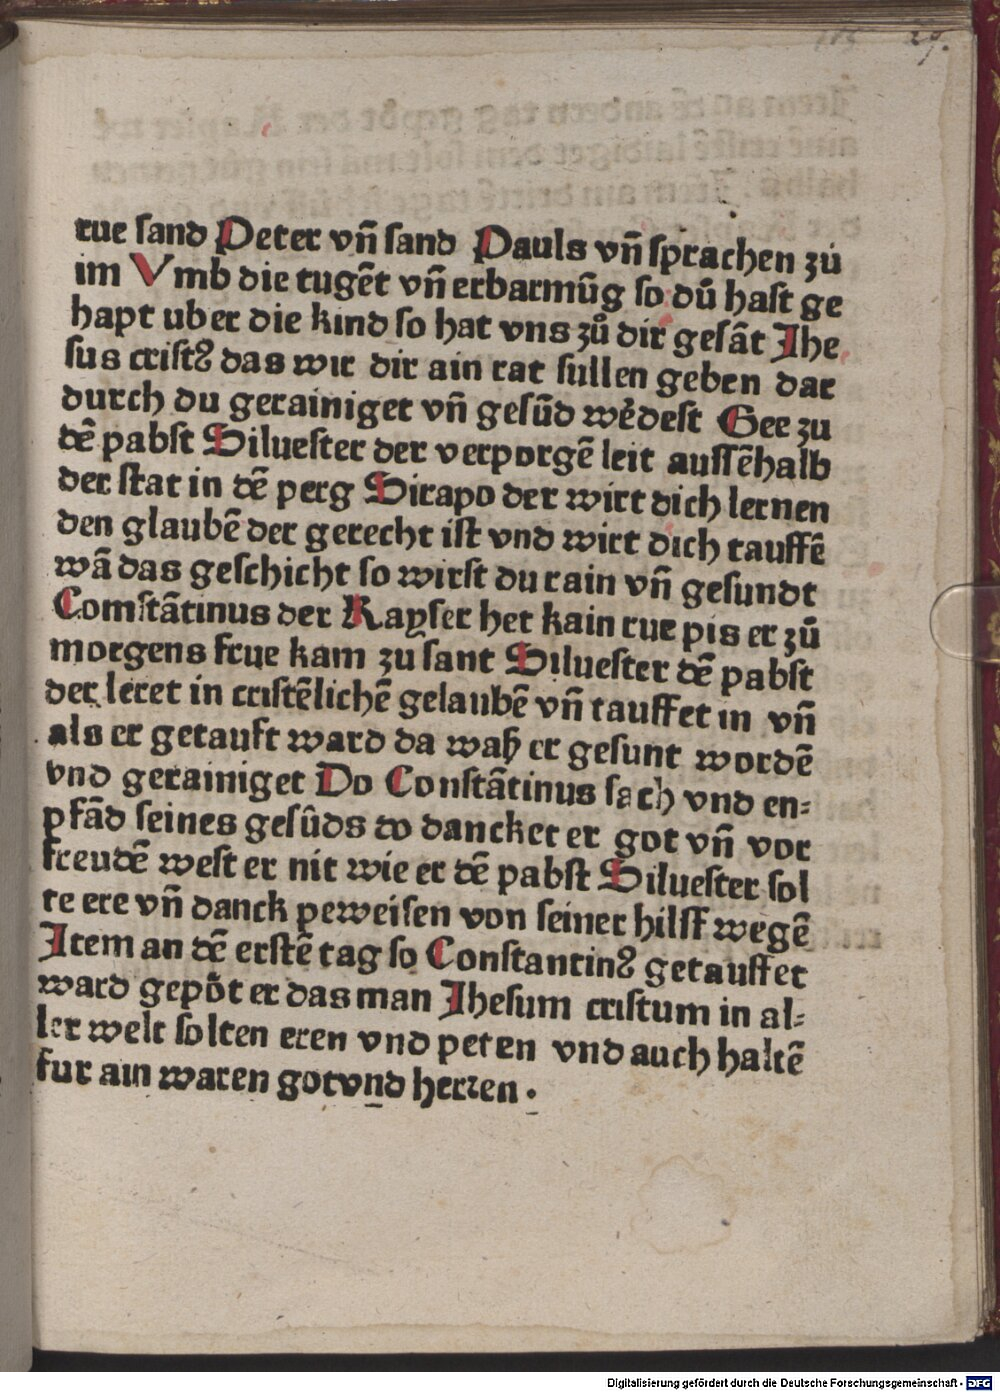 29.
rue sand Peter vn̄ sand Pauls vn̄ sprachen zů
im Vmb die tugēt vn̄ erbarmūg so dů hast ge
hapt uber die kind so hat vns zů dir gesāt Ihe
sus cristꝰ das wir dir ain rat sullen geben dar
durch du gerainiget vn̄ gesūd wdest Gee zu
dē pabst Siluester der verporgē leit aussēhalb
der stat in dē perg Sirapo der wirt dich lernen
den glaubē der gerecht ist vnd wirt dich tauffē
wā das geschicht so wirst du rain vn̄ gesundt
Comstātinus der Kayser het kain rue pis er zū
morgens frue kam zu sant Siluester dē pabst
der leret in cristēlichē gelaubē vn̄ tauffet in vn̄
als er getauft ward da waß er gesunt wordē
vnd gerainiget Do Constātinus sach vnd en⸗
pfād seines gesūds do dancket er got vn̄ vor
freudē west er nit wie er dē pabst Siluester sol
te ere vn̄ danck peweisen von seiner hilff wegē
Item an dē erstē tag so Constantinꝰ getauffet
ward gepōt er das man Ihesum cristum in al⸗
ler welt solten eren vnd peten vnd auch haltē
fur ain waren got vnd herren .
Digitalisierung gefördert durch die Deutsche Forschungsgemeinschaft - DFG